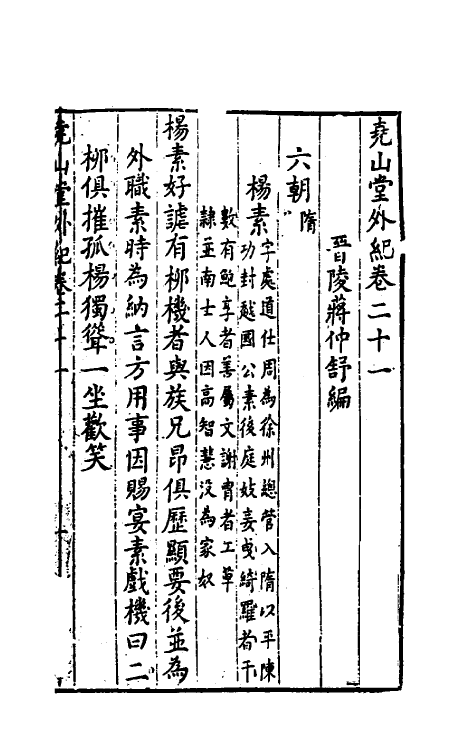 堯山堂外紀卷二十一
晉陵蔣仲舒編
六朝隋
楊素字處道仕周為徐州總管入隋以平陳
功封越國公素後庭妓妾曳綺羅者千
數有鮑亨者善屬文謝胄者工草
隸並南士人因高智慧沒為家奴
楊素好謔有柳機者與族兄昂俱歷顯要後並為
外職素時為納言方用事因賜宴素戲機曰二
柳俱摧孤楊獨聳一坐歡笑
堯山堂外紀卷二十一